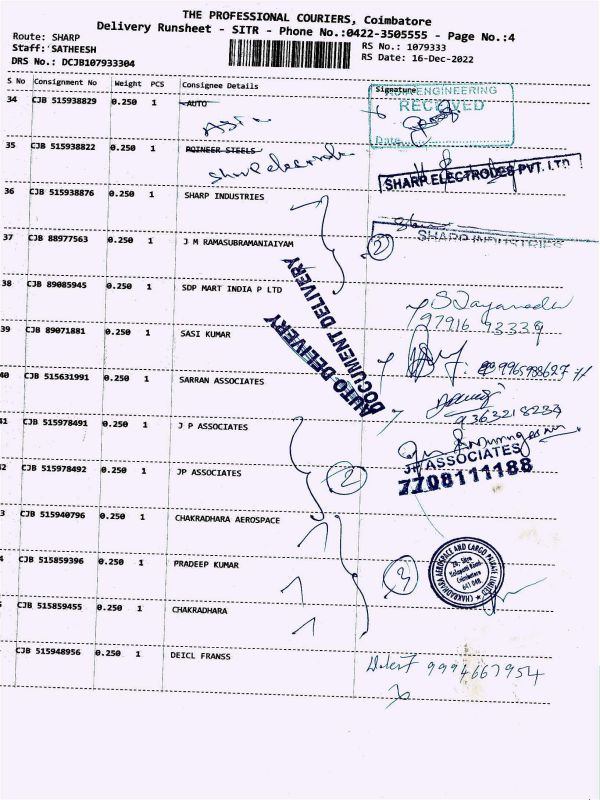 THE PROFESSIONAL COURIERS, Coimbatore
Delivery Runsheet - SITR - Phone No.:0422-3505555 - Page No.:4
Route: SHARP
RS No.: 1079333
Staff: SATHEESH
RS Date: 16-Dec-2022
DRS No.: DCJB107933304
S No Consignment No Weight PCS Consignee Details Signature
ENGINEERING
RECEIVED
Date
34 CJB 515938829 0.250 1 AUTO
35 CJB 515938822 0.250 1 POINEER STEELS
Sharp electrode
SHARP ELECTRODES PVT. LTD
36 CJB 515938876 0.250 1 SHARP INDUSTRIES
SHARP INDUSTRIES
37 CJB 88977563 0.250 1 J M RAMASUBRAMANIAIYAM
2
AUTO DELIVERY
DOCUMENT DELIVERY
38 CJB 89085945 0.250 1 SDP MART INDIA P LTD
97916 93339
39 CJB 89071881 0.250 1 SASI KUMAR
40 CJB 515631991 0.250 1 SARRAN ASSOCIATES
9363218234
41 CJB 515978491 0.250 1 J P ASSOCIATES
JP ASSOCIATES
7708111188
2 CJB 515978492 0.250 1 JP ASSOCIATES
2
3 CJB 515940796 0.250 1 CHAKRADHARA AEROSPACE
4 CJB 515859396 0.250 1 PRADEEP KUMAR
3
CHAKRADHARA AEROSPACE AND CARGO PRIVATE LIMITED
Coimbatore
641 048
CJB 515859455 0.250 1 CHAKRADHARA
CJB 515948956 0.250 1 DEICL FRANSS
9994667954